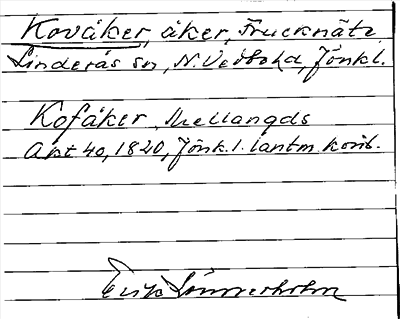 Kovåker, åker, Frucknäte
Linderås sn, N. Vedbo hd, Jönk l.
Kofåker Mellangds
Akt 40, 1820, Jönk. l. lantm. kont.
Erik Lönnerholm